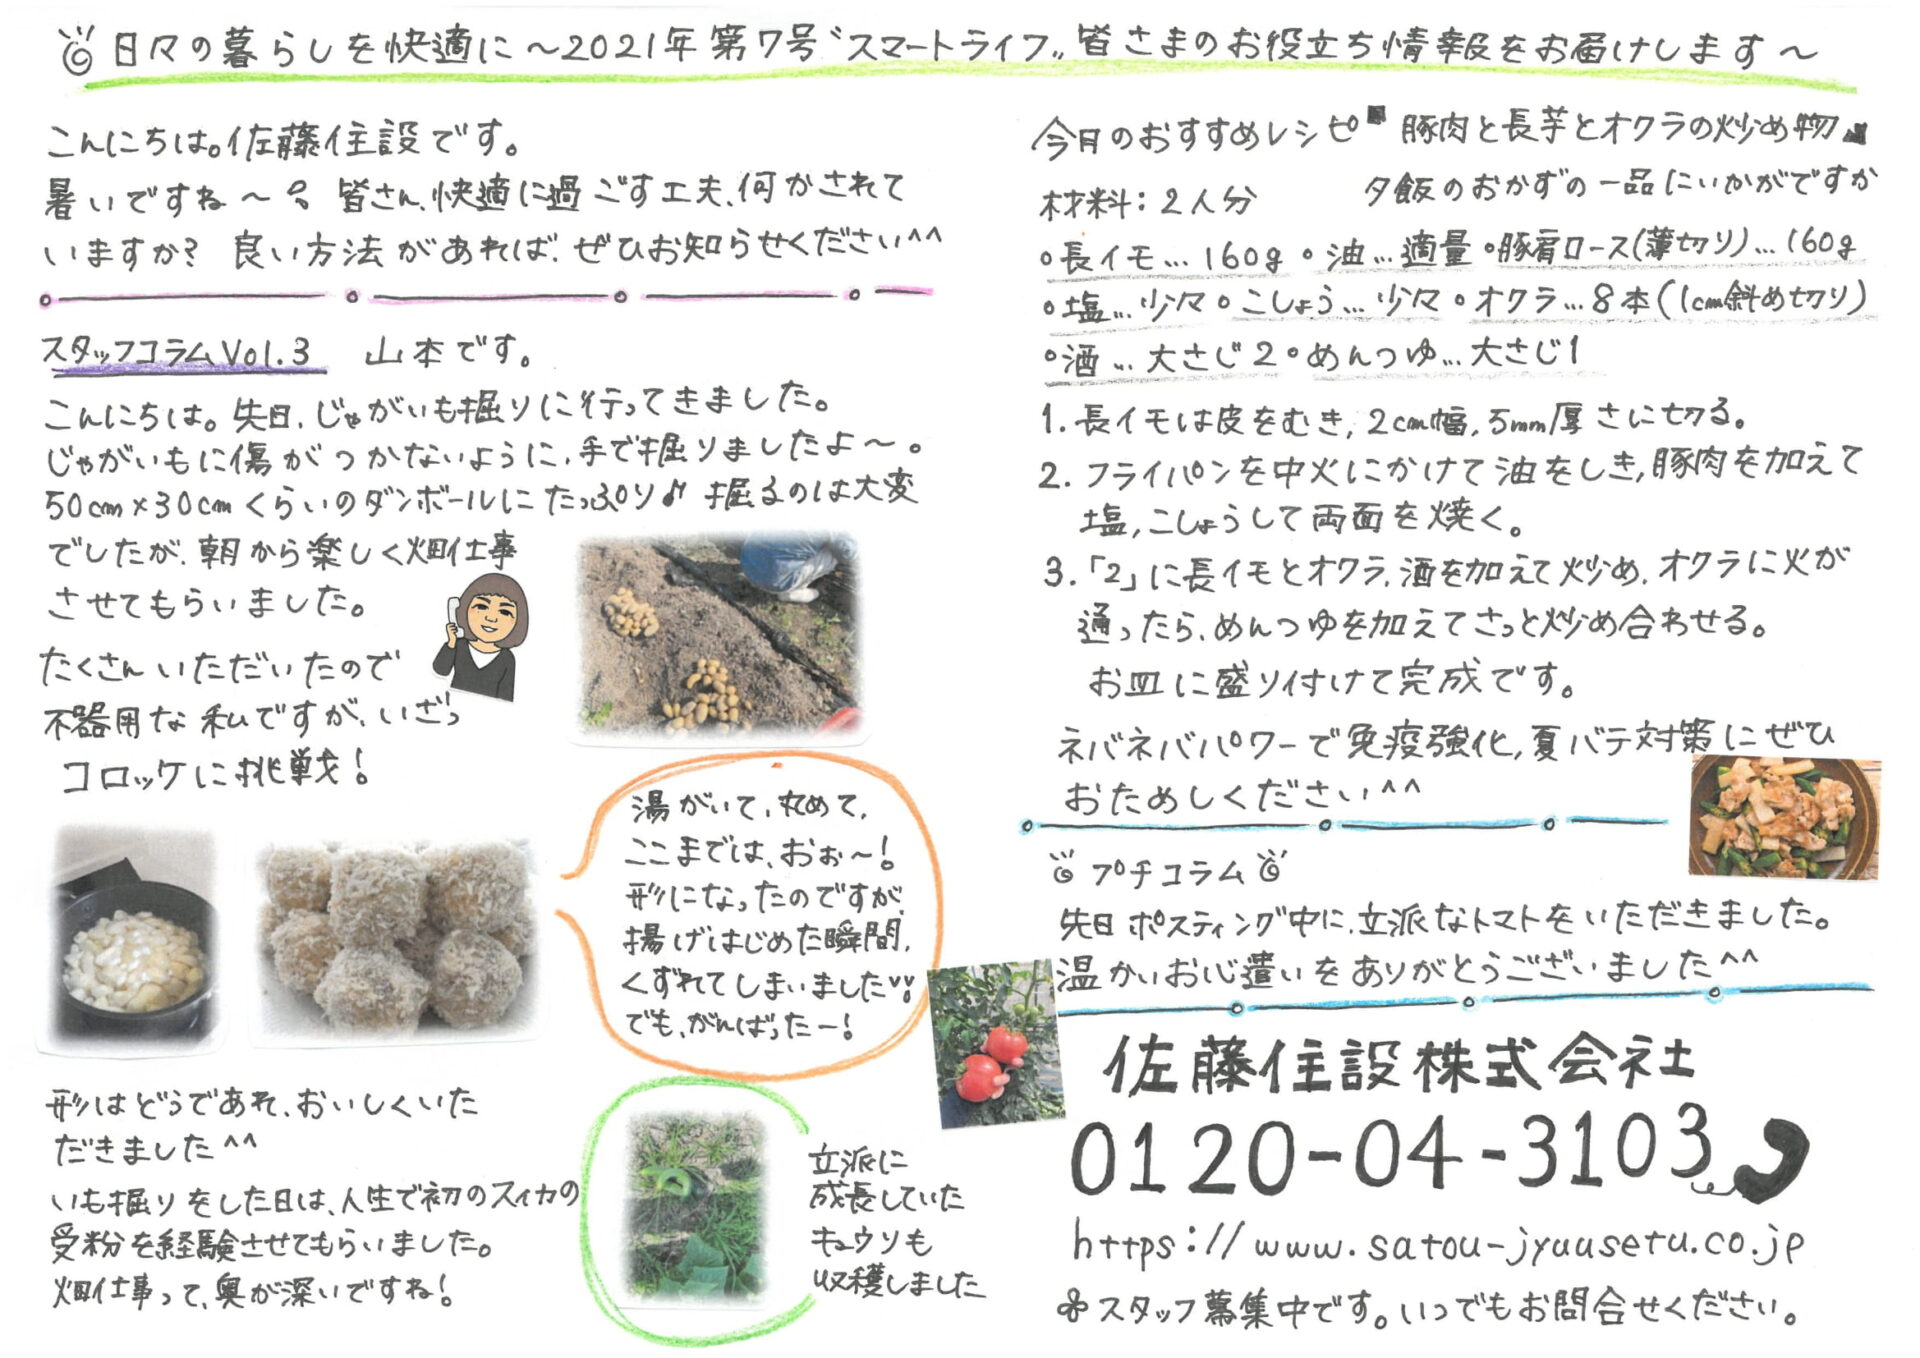 日々の暮らしを快適に～2021年第7号〝スマートライフ〟皆さまのお役立ち情報をお届けします～
こんにちは。佐藤住設です。
暑いですね～ 皆さん、快適に過ごす工夫、何かされて
いますか? 良い方法があれば、ぜひお知らせください^^
スタッフコラムVol.3 山本です。
こんにちは。先日、じゃがいも掘りに行ってきました。
じゃがいもに傷がつかないように、手で掘りましたよ～。
50cm×30cmくらいのダンボールにたっぷり♪ 掘るのは大変
でしたが、朝から楽しく畑仕事
させてもらいました。
たくさんいただいたので
不器用な私ですが、いざっ
コロッケに挑戦!
湯がいて、丸めて、
ここまでは、おぉ～!
形になったのですが、
揚げはじめた瞬間、
くずれてしまいました
でも、がんばったー!
形はどうであれ、おいしくいた
だきました^^
いも掘りをした日は、人生で初のスイカの
受粉を経験させてもらいました。
畑仕事って、奥が深いですね!
立派に
成長していた
キュウリも
収穫しました
今日のおすすめレシピ 豚肉と長芋とオクラの炒め物
材料:2人分 夕飯のおかずの一品にいかがですか
◦長イモ…160g ◦油…適量 ◦豚肩ロース(薄切り)…160g
◦塩…少々 ◦こしょう…少々 ◦オクラ…8本(1cm斜め切り)
◦酒…大さじ2 ◦めんつゆ…大さじ1
1.長イモは皮をむき,2cm幅,5mm厚さに切る。
2.フライパンを中火にかけて油をしき,豚肉を加えて
塩,こしょうして両面を焼く。
3.「2」に長イモとオクラ,酒を加えて炒め,オクラに火が
通ったら、めんつゆを加えてさっと炒め合わせる。
お皿に盛り付けて完成です。
ネバネバパワーで免疫強化,夏バテ対策にぜひ
おためしください^^
プチコラム
先日ポスティング中に、立派なトマトをいただきました。
温かいお心遣いをありがとうございました^^
佐藤住設株式会社
0120-04-3103
https://www.satou-jyuusetu.co.jp
スタッフ募集中です。いつでもお問合せください。